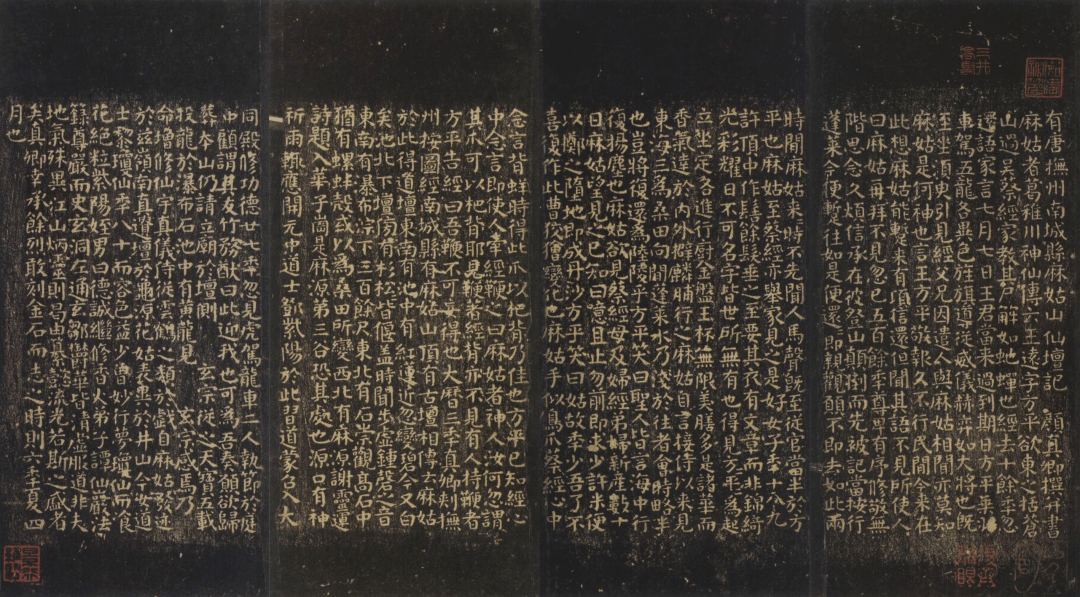 有唐撫州南城縣麻姑山仙壇記 顏真卿撰并書
麻姑者葛稚川神仙傳云王遠字方平欲東之括蒼
山過吳蔡經家教其尸解如蛇蟬也經去十餘年忽
還語家言七月七日王君當來過到期日方平乘羽
車駕五龍各異色旌旗導從威儀赫弈如大將也既
至坐須臾引見經父兄因遣人與麻姑相聞亦莫知
麻姑是何神也言王方平敬報久不行民間今來在
此想麻姑能暫來有頃信還但聞其語不見所使人
曰麻姑再拜不見忽已五百餘年尊卑有序修敬無
階思念久煩信承在彼登山顛倒而先被記當按行
蓬萊今便暫往如是便還即親觀願不即去如此兩
時間麻姑來時不先聞人馬聲既至從官當半於方
平也麻姑至蔡經亦舉家見之是好女子年十八九
許頂中作髻餘髮垂之至要其衣有文章而非錦綺
光彩耀日不可名字皆世所無有也得見方平方平為起
立坐定各進行廚金盤玉杯無限美膳多是諸華而
香氣達於內外擗麟脯行之麻姑自言接待以來見
東海三為桑田向間蓬萊水乃淺於往者會時略半
也豈將復還為陵陸乎方平笑曰聖人皆言海中行
復揚塵也麻姑欲見蔡經母及婦經弟婦新產數十
日麻姑望見之已知曰噫且止勿前即求少許米便
以擲之墮地即成丹沙方平笑曰姑故年少吾了不
喜復作此曹狡獪變化也麻姑手似鳥爪蔡經心中
念言背蛘時得此爪以杷背乃佳也方平已知經心
中念言即使人牽經鞭之曰麻姑者神人汝何忽謂
其爪可以杷背耶見鞭著經背亦不見有人持鞭者
方平告經曰吾鞭不可妄得也大曆三年真卿刺撫
州按圖經南城縣有麻姑山頂有古壇相傳云麻姑
於此得道壇東南有池中有紅蓮近忽變碧今又白
矣池北下壇傍有杉松皆偃蓋時聞步虛鍾磬之音
東南有瀑布淙下三百餘尺東北有石崇觀高石中
猶有螺蚌殼或以為桑田所變西北有麻源謝靈運
詩題入華子岡是麻源第三谷恐其處也源口有神
祈雨輒應開元中道士鄧紫陽於此習道蒙召入大
同殿修功德廿七年忽見虎駕龍車二人執節於庭
中顧謂其友竹務猷曰此迎我也可為吾奏願欲歸
葬本山仍請立廟於壇側玄宗從之天寶五載
投龍於瀑布石池中有黃龍見玄宗感焉乃
命增修仙宇真儀侍從雲鶴之類於戲自麻姑發跡
於茲嶺南真遺壇於龜源花姑表異於井山今女道
士黎瓊仙年八十而容色益少曾妙行夢瓊仙而餐
花絕粒紫陽姪男曰德誠繼修香火弟子譚仙巖法
籙尊嚴而史玄洞左通玄鄒鬱華皆清虛服道非夫
地氣殊異江山炳靈則曷由纂懿流光若斯之盛者
矣真卿幸承餘烈敢刻金石而志之時則六年夏四
月也